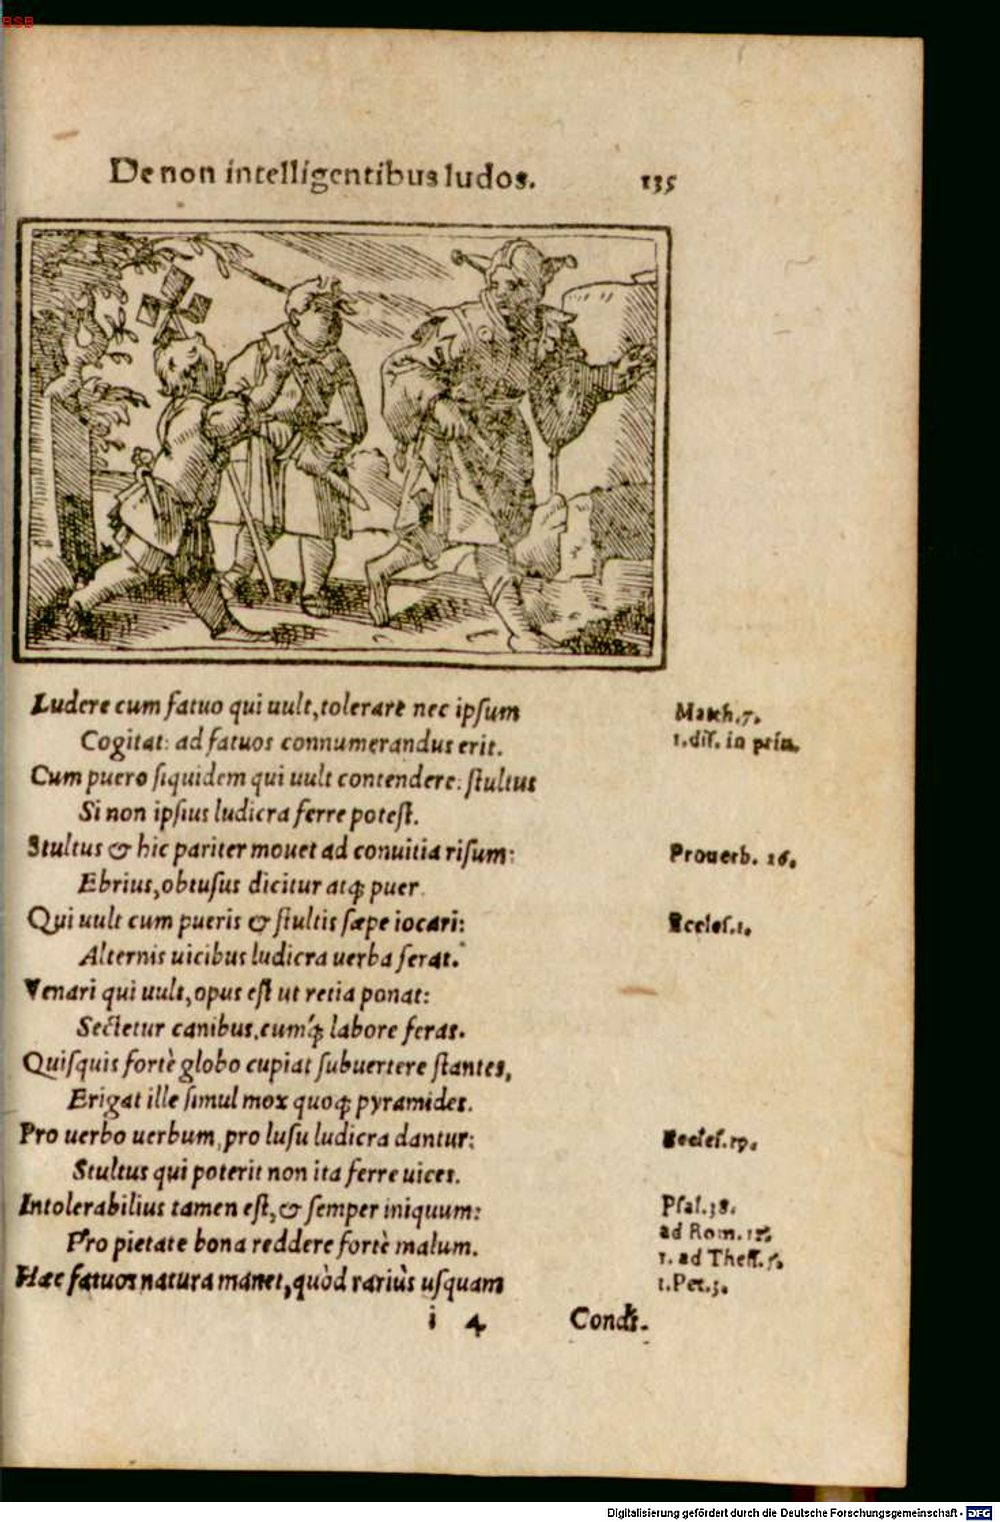 BSB
De non intelligentibus ludos. 135
Ludere cum fatuo qui uult, tolerare nec ipſum
Matth.7.
Cogitat: ad fatuos connumerandus erit.
1.diſ. in prin.
Cum puero ſiquidem qui uult contendere: ſtultus
Si non ipſius ludicra ferre poteſt.
Stultus & hic pariter mouet ad conuitia riſum:
Prouerb. 26.
Ebrius, obtuſus dicitur atq; puer.
Qui uult cum pueris & ſtultis ſæpe iocari:
Eccleſ.1.
Alternis uicibus ludicra uerba ferat.
Venari qui uult, opus eſt ut retia ponat:
Sectetur canibus, cumq́; labore feras.
Quiſquis fortè globo cupiat ſubuertere ſtantes,
Erigat ille ſimul mox quoq; pyramides.
Pro uerbo uerbum, pro luſu ludicra dantur:
Eccleſ.19.
Stultus qui poterit non ita ferre uices.
Intolerabilius tamen eſt, & ſemper iniquum:
Pſal.38.
Pro pietate bona reddere fortè malum.
ad Rom.
1. ad Theſſ. 5.
Hæc fatuos natura manet, quòd rariùs uſquam
1.Pet.3.
i 4 Condi-
Digitalisierung gefördert durch die Deutsche Forschungsgemeinschaft - DFG